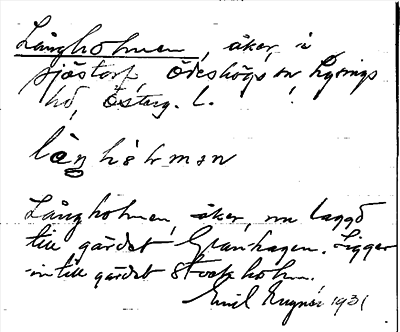 Långholmen, åker, i
Sjöstorp, Ödeshögs sn, Lysings
hd, Österg. l.
Långholmen, åker, nu lagd
till gärdet Granhagen. Ligger
intill gärdet Stockholm.
Emil 1931